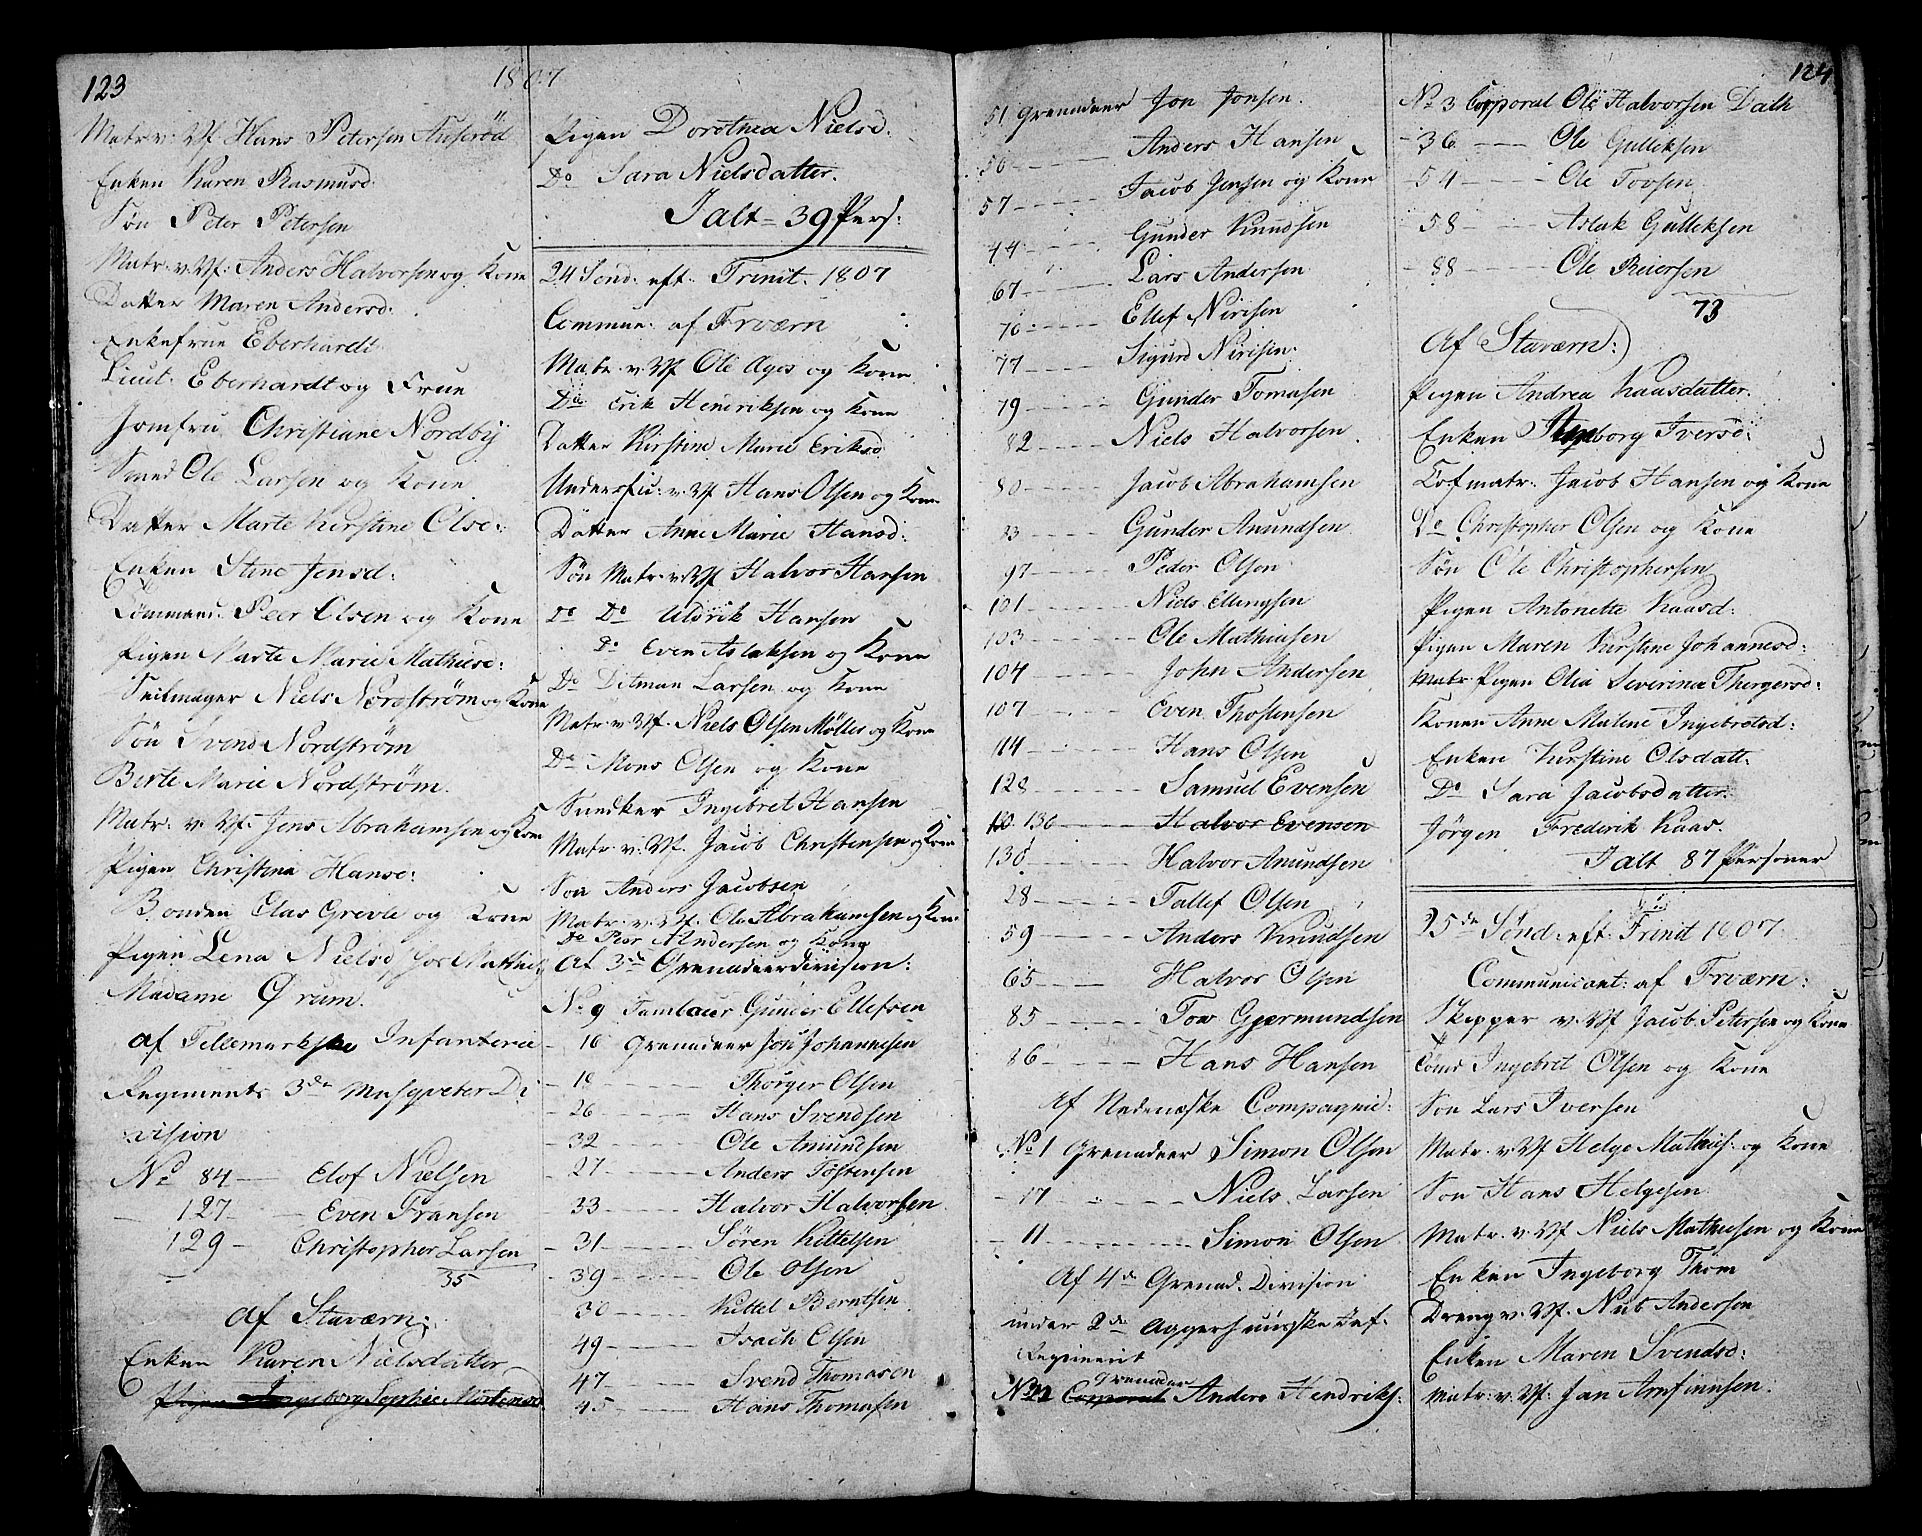 123
1807
Matr v: Vf Hans Petersen Auserød
Enken Karen Rasmusd:
Søn Peter Petersen
Matr. v. Vf: Anders Halvorsen og Kone
Datter Maren Andersd:
Enkefrue Eberhardt
Lieut: Eberhardt og Frue
Jomfru Christiane Nordby
Smed Ole Larsen og Kone
Datter Marte Kirstine Olsd:
Enken Stine Jensd:
Tømmerm: Peer Olsen og Kone
Pigen Marte Marie Mathisd:
Seilmager Niels Nordstrøm og Kone
Søn Svend Nordstrøm
Berte Marie Nordstrøm.
Matr: v. Vf: Jens Abrahamsen og Kone
Pigen Christina Hansd:
Bonden Clas Grevle og Kone
Pigen Lena Nielsd,
Madame Ørum.
af Tellemarkske Infanterie
Regiments 3de Musqveter Di
vision
No 84 — Elof Nielsen
127 — Even Fransen
129 — Christopher Larsen
35
af Staværn:
Enken Karen Nielsdatter
Pigen Ingeborg Sophie Mortensd
Pigen Dorothea Nielsd:
Do Sara Nielsdatter.
Ialt = 39 Pers:
24 Sønd: eft: Trinit. 1807
Commun: af Frværn
Matr. v. Vf Ole Agos og Kone
Do Erik Henriksen og Kone
Datter Kirstine Marie Eriksd
Undersku: v. Vf Hans Olsen og Kone
Datter Anne Marie Hansd:
Søn Matr: v. Vf Halvor Hansen
Do Do Uldrik Hansen
Do Even Aslaksen og Kone
Do Ditman Larsen og Kone
Matr. v. Vf. Niels Olsen Møllers og Kone
Do Mons Olsen og Kone
Snedker Ingebret Hansen
Matr v: Vf. Jacob Christensen og Kone
Søn Anders Jacobsen
Matr: v. Vf. Ole Abrahamsen og Kone
Do Peer Andersen og Kone
Af 3de Grenadeerdivision:
No 9 Tambour Gunder Ellefsen
- 16 Grenadeer Jon Johannesen
- 19 — Thorger Olsen
- 26 — Hans Svendsen
- 32 — Ole Amundsen
- 27 — Anders Tostensen
- 33 — Halvor Halvorsen
- 31 — Søren Kittelsen
- 39 — Ole Olsen
30 — Kittel Berntsen
49 — Isach Olsen
47 — Svend Thomasen
45 — Hans Thomasen
124
51 Grenadeer Jon Jonsen.
56 — Anders Hansen
57 — Jacob Jensen og Kone
44 — Gunder Knudsen
67 — Lars Andersen
70 — Ellef Nirisen
77 — Sigurd Nirisen
79 — Gunder Tomasen
82 — Niels Halvorsen
80 — Jacob Abrahamsen
93 — Gunder Anundsen
97 — Peder Olsen
101 — Niels Ellingsen
103 — Ole Mathiesen
104 — John Andersen
107 — Even Thostensen
114 — Hans Olsen
128 — Samuel Evensen
136 — Halvor Evensen
130 — Halvor Amundsen
28 — Tallef Olsen
59 — Anders Knudsen
65 — Halvor Olsen
85 — Tow Gjermundsen
86 — Hans Hansen
Af Nedenæske Compagnie:
No 1 Grenadeer Simon Olsen
- 17 — Niels Larsen
- 11 — Simon Olsen
Af 4de Grenad. Division
under 2de Aggershuuske Inf:
Regiment
Grenadeer
No 22 Corporal Anders Hendriks:
No 3 Corporal Ole Halvorsen Dalh
- 36 — Ole Gulleksen
- 54 — Ole Tovsen
- 58 — Aslak Gulleksen
- 88 — Ole Reiersen
73
Af Staværn:
Pigen Andrea Kaasdatter.
Enken Ingeborg Iversd:
Tofmatr: Jacob Hansen og Kone
Do Christopher Olsen og Kone
Søn Ole Christophersen
Pigen Antonette Kaasd:
Pigen Maren Kirstine Johannesd:
Matr Pigen Olea Severina Thorgersd:
Konen Anne Malene Ingebretsd:
Enken Kirstine Olsdatt:
Do Sara Jacobsdatter
Jörgen Frederik Kaas.
Ialt 87 Personer
25de Sønd: eft: Trinit 1807.
Communicant: af Frværn:
Skipper v. Vf Jacob Petersen og Kone
Ingebret Olsen og Kone
Søn Lars Iversen
Matr. v. Vf Helge Mathis: og Kone
Søn Hans Helgesen
Matr. v. Vf Niels Mathiesen og Kone
Enken Ingeborg Thom
Dreng v. Vf. Niels Andersen
Enken Maren Svendsd:
Matr: v: Vf. Jan Arnfinnsen.